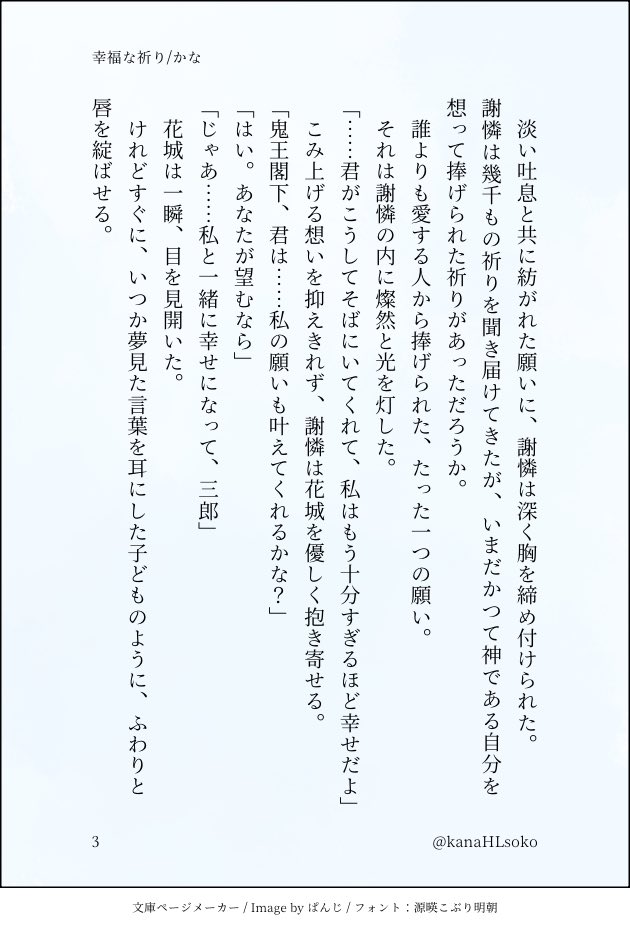 幸福な祈り/かな
淡い吐息と共に紡がれた願いに、謝憐は深く胸を締め付けられた。
謝憐は幾千もの祈りを聞き届けてきたが、いまだかつて神である自分を
想って捧げられた祈りがあっただろうか。
誰よりも愛する人から捧げられた、たった一つの願い。
それは謝憐の内に燦然と光を灯した。
「……君がこうしてそばにいてくれて、私はもう十分すぎるほど幸せだよ」
こみ上げる想いを抑えきれず、謝憐は花城を優しく抱き寄せる。
「鬼王閣下、君は……私の願いも叶えてくれるかな？」
「はい。あなたが望むなら」
「じゃあ……私と一緒に幸せになって、三郎」
花城は一瞬、目を見開いた。
けれどすぐに、いつか夢見た言葉を耳にした子どものように、ふわりと
唇を綻ばせる。
3
@kanaHLsoko
文庫ページメーカー / Image by ぱんじ / フォント：源暎こぶり明朝